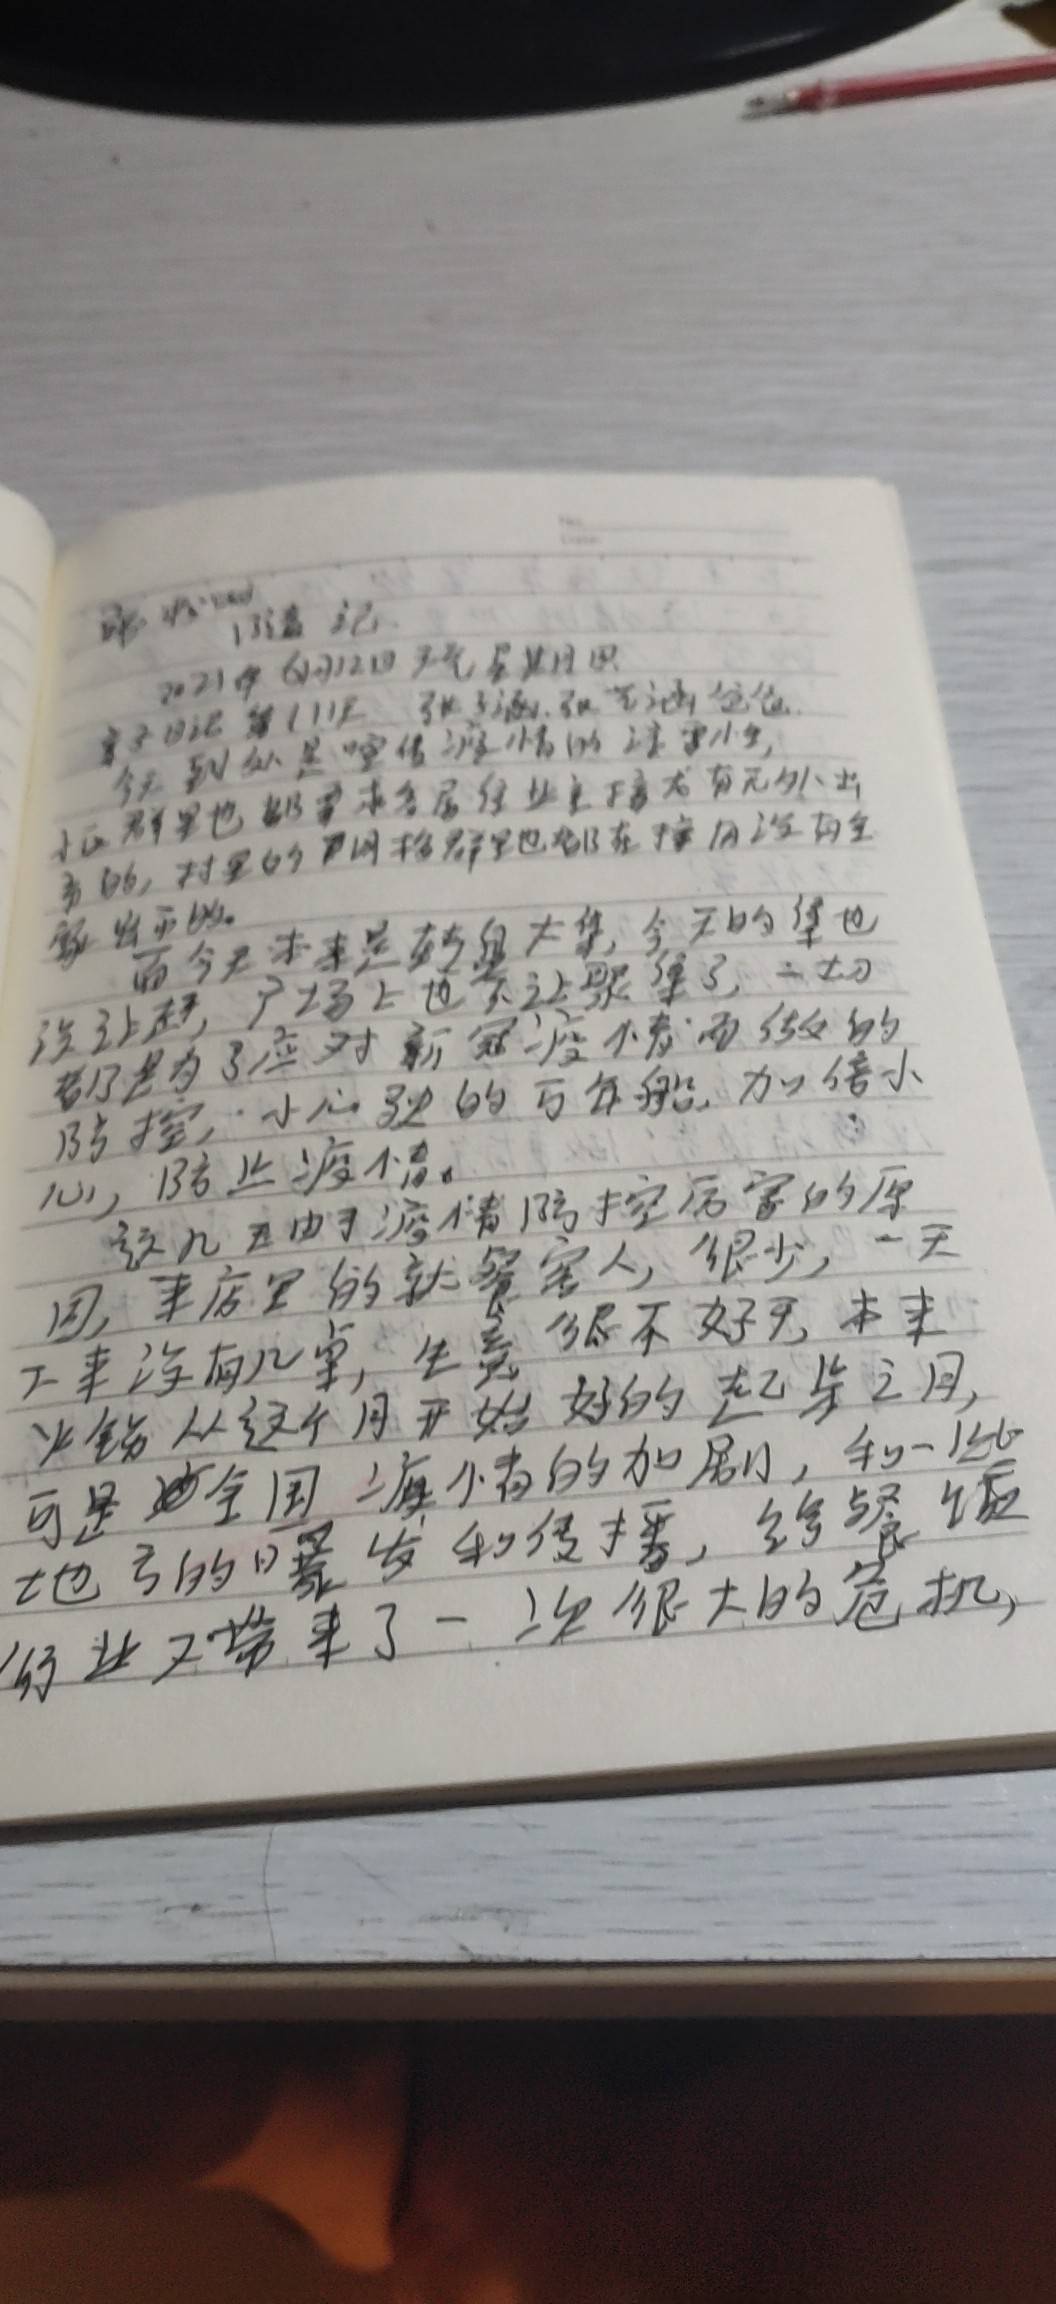 记
2021年 月12日 天气 星期
亲子日记 第111天 张 涵.张 涵爸爸.
今天到处是宣传疫情的注意 ,
群里也都要求各居 业主 有无外出
的,村里的网格群里也都在 没有
而今天本来是 大集,今天的集也
没让赶,广场上也不让聚集了,一切
都是为了应对新冠疫情而做的
防控,小心驶的万年船,加倍小
心,防止疫情。
这几天由于疫情防控厉害的原
因,来店里的就餐客人,很少,一天
下来没有几桌,生意很不好干,本来
火锅从这个月开始好的起步之月,
可是 全国疫情的加剧,和一些
地方的曝发和传播,给餐饭
行业又带来了一次很大的危机,